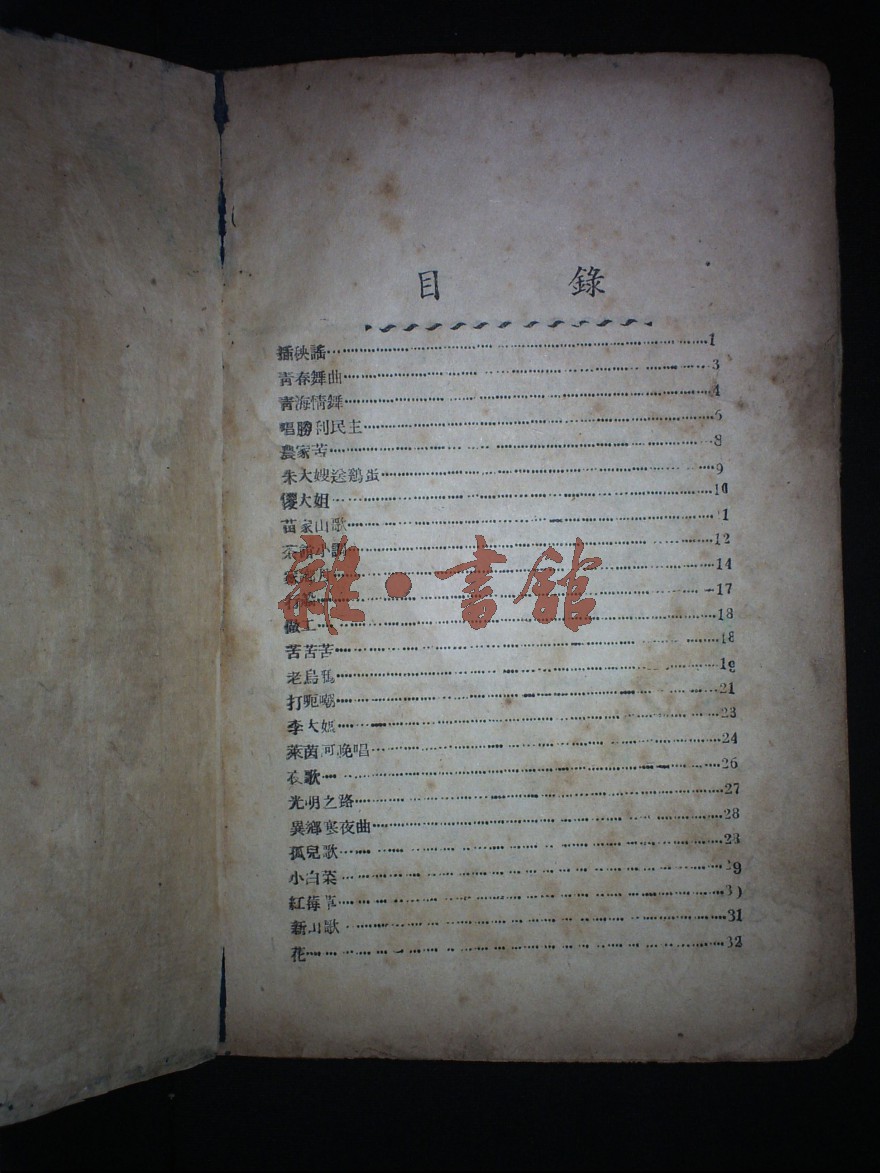 目 錄
插秧謠 1
青春舞曲 3
青海情舞 4
唱勝利民主 6
農家苦 8
朱大嫂送鷄蛋 9
傻大姐 10
苗家山歌 11
茶館小調 12
14
17
做工 18
苦苦苦 18
老烏鴉 19
打呃嘞 21
李大媽 23
萊茵河晚唱 24
歌 26
光明之路 27
異鄉寒夜曲 28
孤兒歌 28
小白菜 29
紅莓 30
新山歌 31
花 32
雜·書館